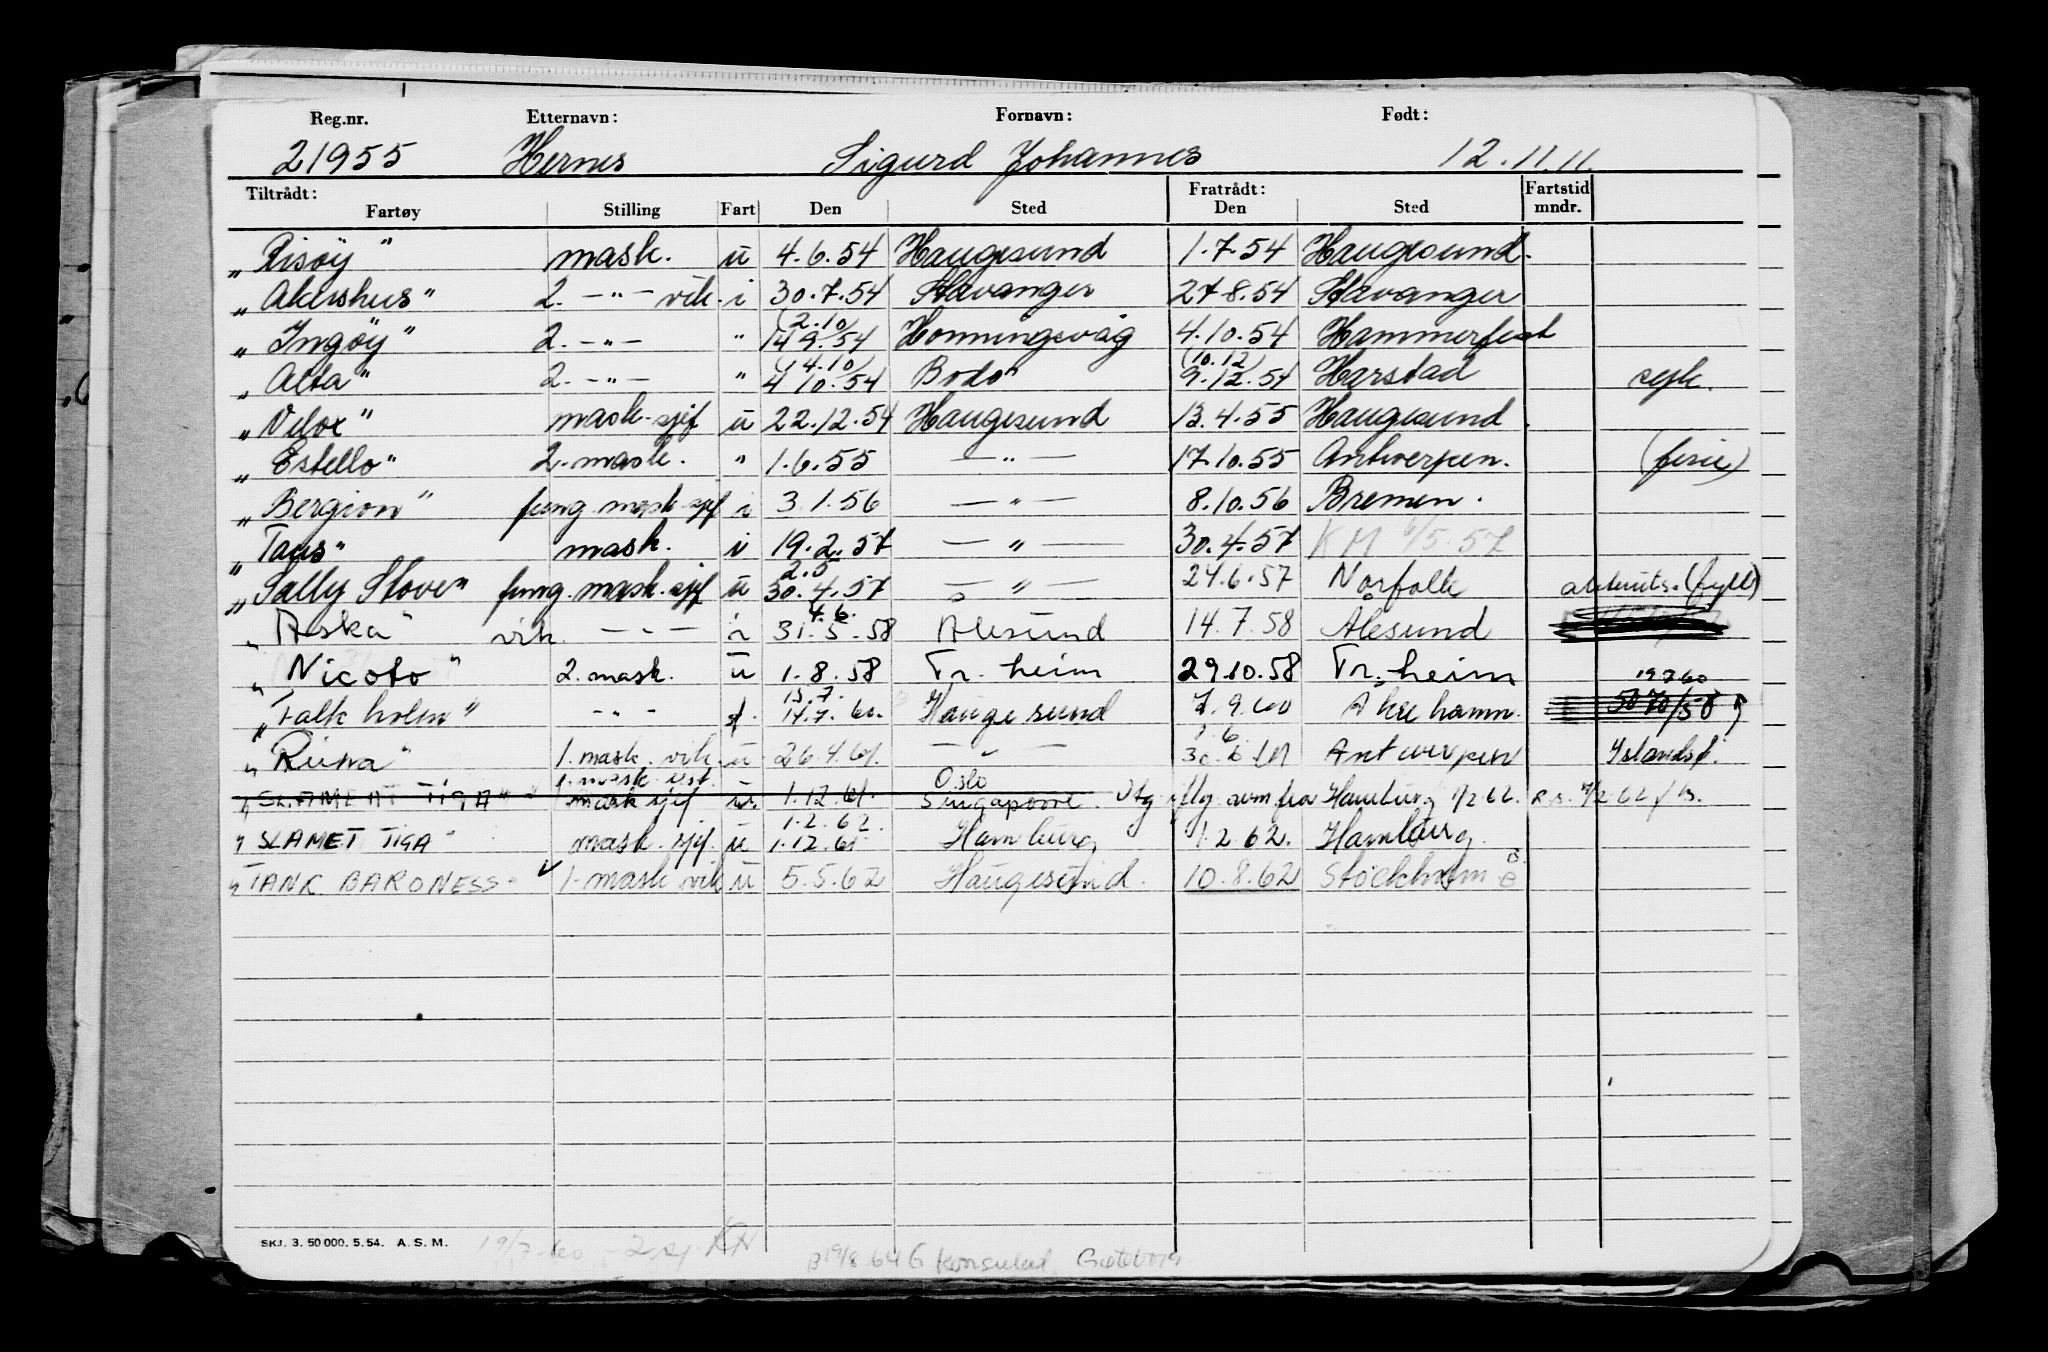 Reg.nr. Etternavn: Fornavn: Født:
21955 Hernes Sigurd Johannes 12.11.11.
Tiltrådt: Fratrådt: Fartstid
Fartøy Stilling Fart Den Sted Den Sted mndr.
„Risøy" mask. u 4.6.54 Haugesund 1.7.54 Haugesund.
„Akershus" 2. —"— vik. i 30.7.54 Stavanger 27.8.54 Stavanger
(2.10)
„Ingøy" 2. —"— " 14.9.54 Honningsvåg 4.10.54 Hammerfest
(4.10) (10.12)
„Alta" 2. —"— " 4.10.54 Bodø 9.12.54 Harstad syk.
mask.sjef u 22.12.54 Haugesund 13.4.55 Haugesund.
„Estello" 2. mask. " 1.6.55 —"— 17.10.55 Antwerpen. (ferie)
„Bergion" fung. mask.sjef i 3.1.56 —"— 8.10.56 Bremen.
„Taus" mask. i 19.2.57 —"— 30.4.57 KM 6/5.57
2.5
„Sally Stove" fung. mask.sjef u 30.4.57 —"— 24.6.57 Norfolk (fyll)
4.6.
„Aska" vik. —"— i 31.5.58 Ålesund 14.7.58 Ålesund
„Nicoto" 2. mask. u 1.8.58 Tr.heim 29.10.58 Tr.heim 19760
15.7.
„Falkholm" —"— f. 14.7.60. Haugesund 7.9.60 Akrehamn.
„Runa" 1. mask. vik. u 26.4.61. —"— 30.6.61 Antwerpen Islandsf.
1. mask. Oslo
„SLAMEAT TIGA" mask sjef u. 1.12.61. Singapore. Utg iflg. avm. fra Hamburg 1/2 62.
1.2.62.
„SLAMET TIGA" mask.sjef. u 1.12.61 Hamburg 1.2.62. Hamburg.
„TANK BARONESS" ✓ 1. mask. vik u 5.5.62 Haugesund. 10.8.62 Stockholm
SKJ. 3. 50 000. 5. 54. A. S. M. 19/7-60 B 19/8.64 G Konsulat Gøteborg